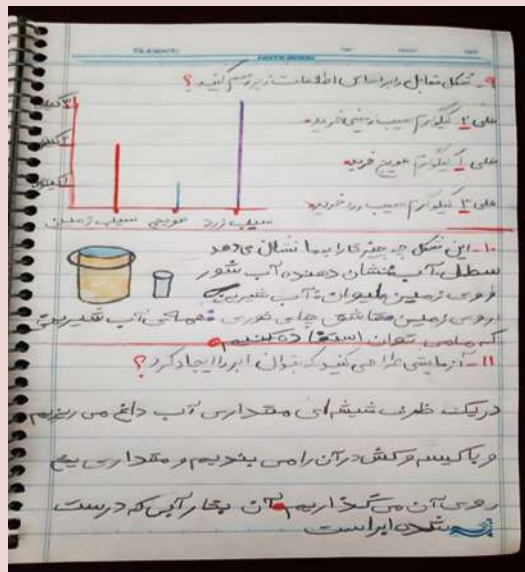 NOTE BOOK
۹- شکل مقابل را براساس اطلاعات زیر رسم کنید؟
علی ۲ کیلوگرم سیب زمینی خرید.
علی ۱ کیلوگرم هویج خرید.
علی ۳ کیلوگرم سیب زرد خرید.
سیب زمینی هویج سیب زرد
۱۰- این شکل چه چیزی را به ما نشان می دهد
سطل آب: نشان دهنده آب شور
روی زمین. لیوان: آب شیرین
روی زمین. قاشق چای خوری: همه ی آب شیرینی
که ما می توان استفاده کنیم.
۱۱- آزمایشی طراحی کنید که بتوان ابر را ایجاد کرد؟
در یک ظرف شیشه ای مقداری آب داغ می ریزیم
و با کیسه و کش در آن را می بندیم و مقداری یخ
روی آن می گذاریم. آن بخار آبی که درست
شده ابر است